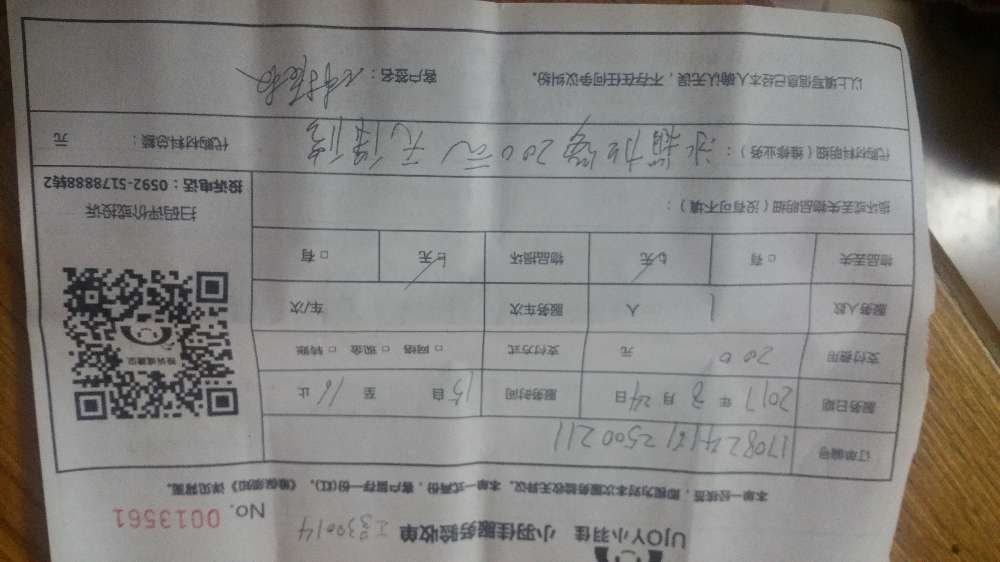 UJOY小羽佳 小羽佳服务验收单
No. 0013561
本单一经核签，即视为对本次服务验收无异议。本单一式两份，客户留存一份(红)。《维保须知》详见背面。
订单编号 1708241612500211
服务日期 2017 年 8 月 24 日 服务时间 15 自 至 16 止
支付费用 200 元 支付方式 □ 网络 □ 现金 □ 转账
服务人数 1 人 服务车次 车/次
物品丢失 □ 有 □ 无 物品损坏 □ 无 □ 有
损坏或丢失物品明细（没有可不填）：
投诉或建议
扫码评价或投诉
投诉电话：0592-5178888转2
代购材料明细（维修业务）： 冰箱加 200元 无保修
代购材料总额： 元
以上填写信息已经本人确认无误，不存在任何争议纠纷。 客户签名：